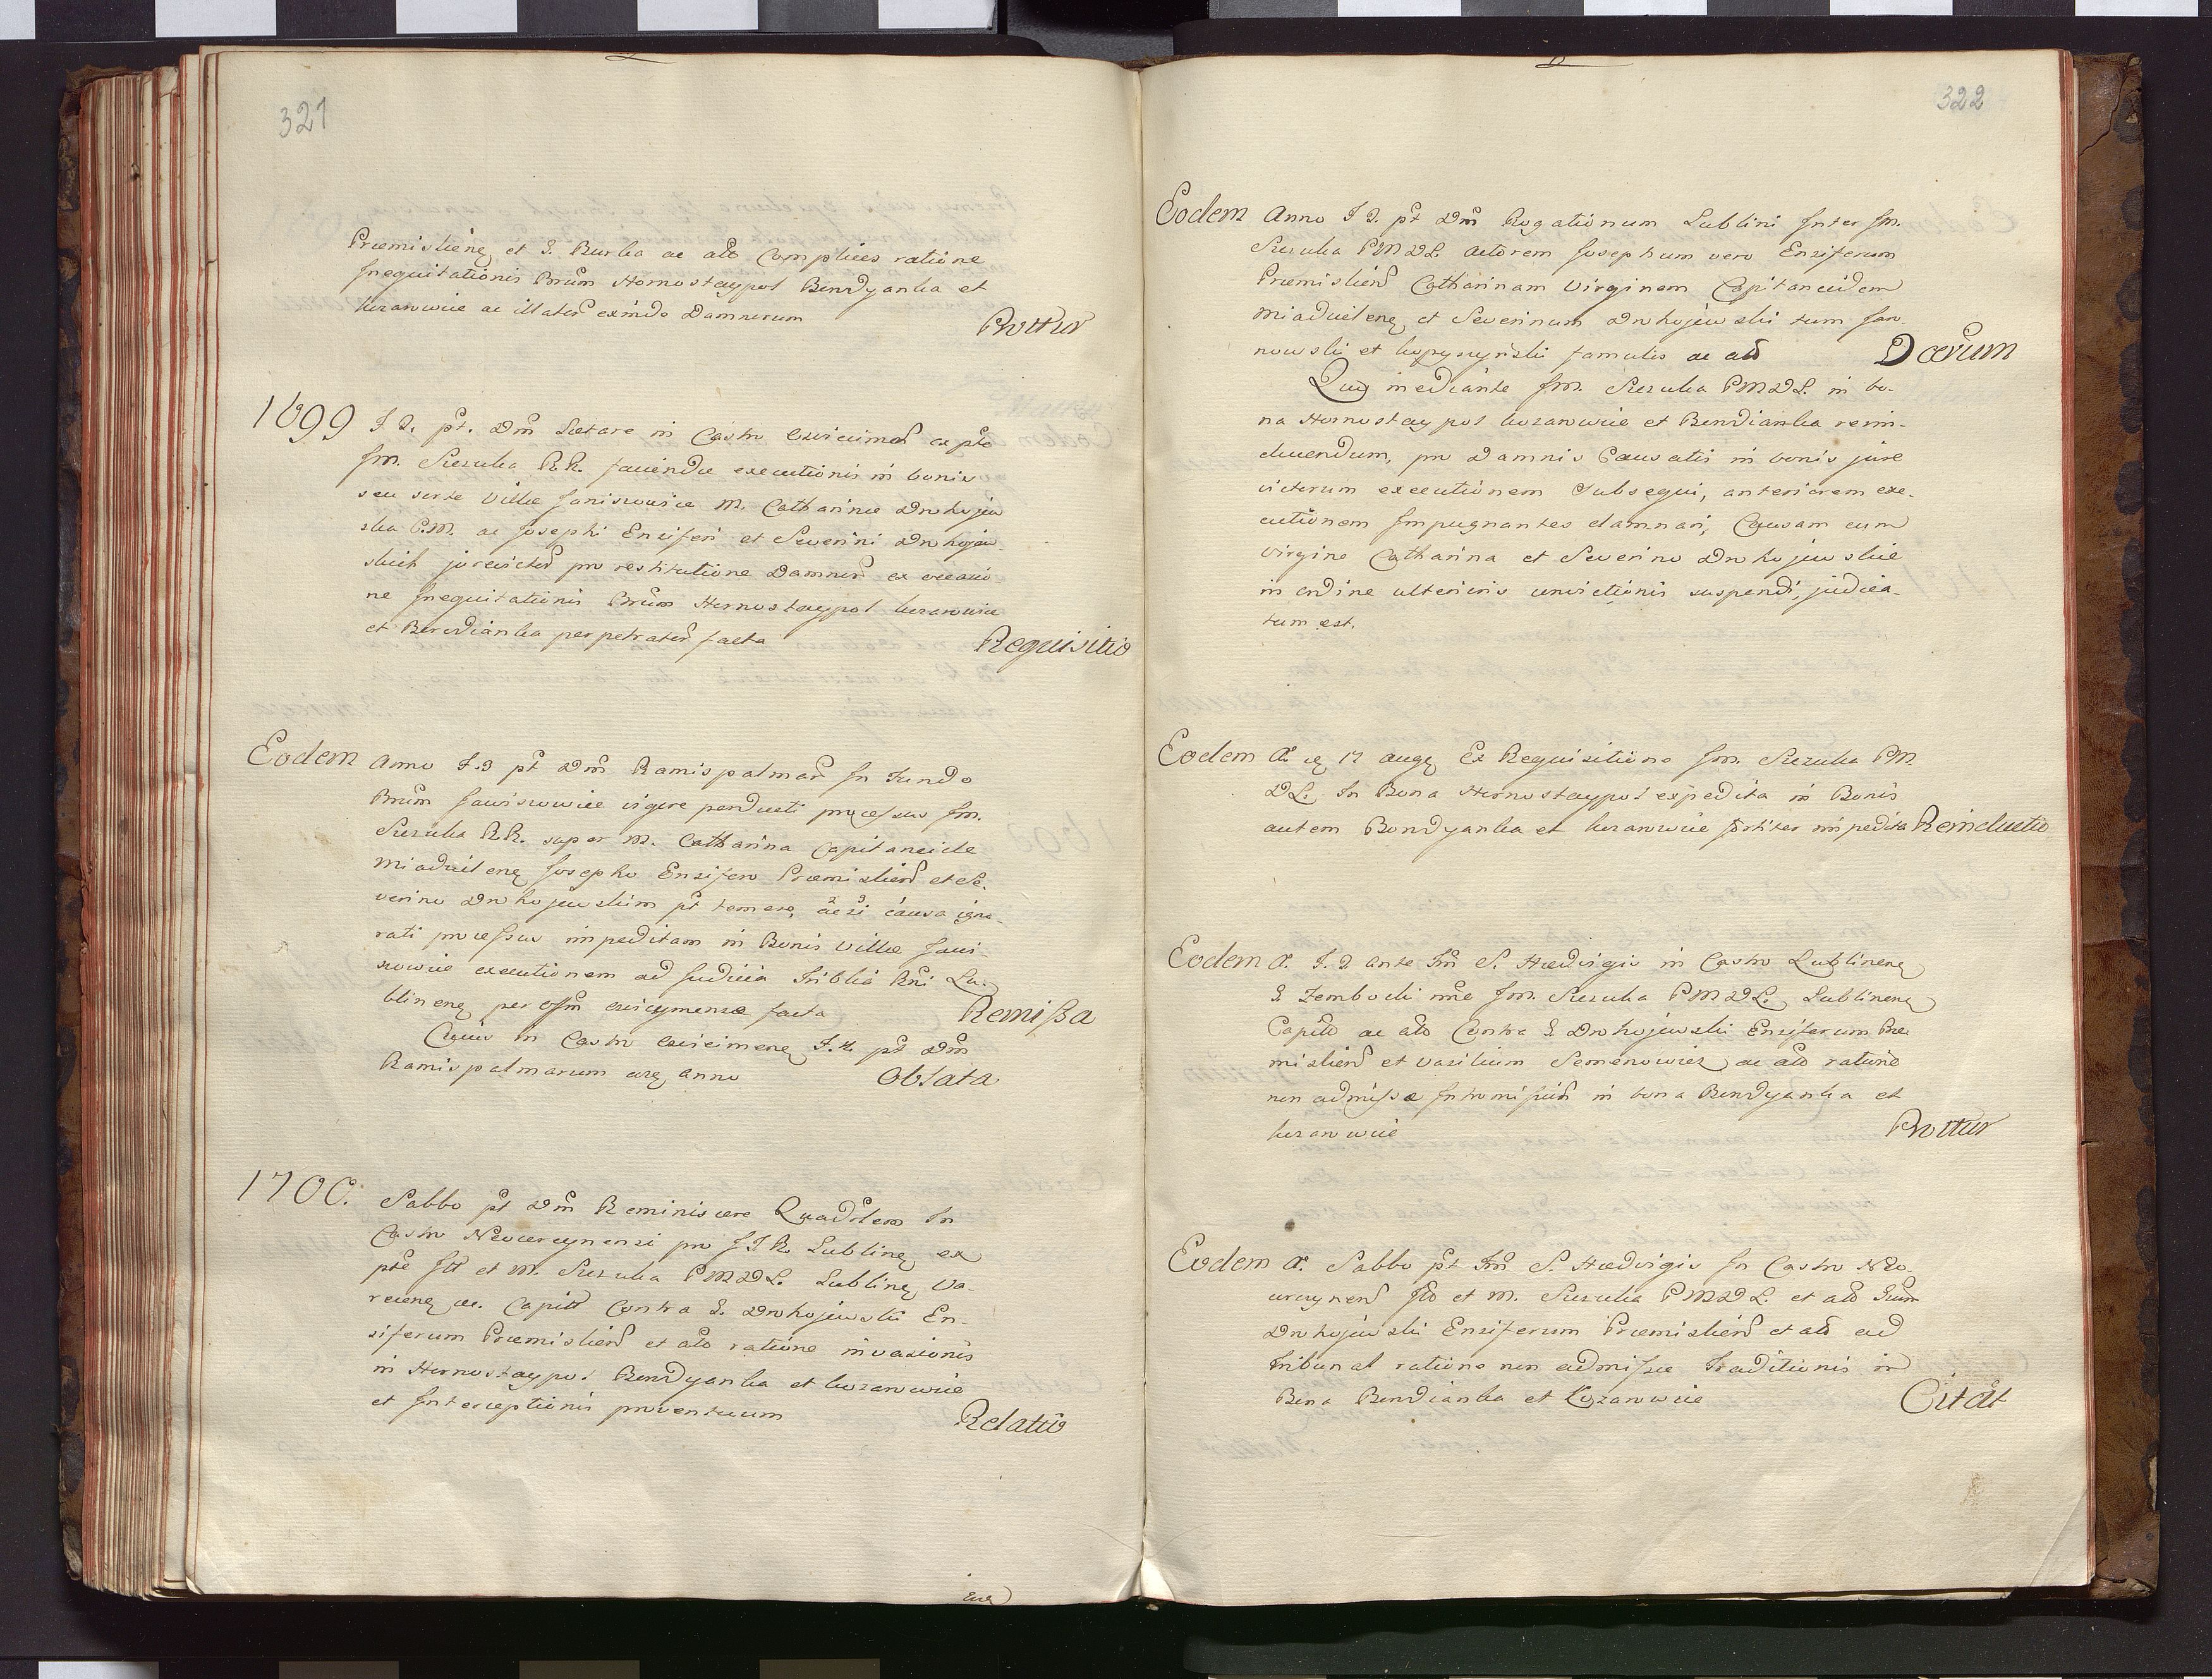 321
Præmislienę et G. Burba ac alō Complices ratione
Inequitationis Bnrūm Hornostaypol Bendyanka et
kozarowice ac illatōr exinde Damnorum Prottur
1699 F 2. pt. Dnm Lætare in Castro ex pte
Im. Szczuka R.R. faciendæ executionis in bonis
seu sorte Villæ M. Catharinæ Drohojew
ska C.M. ac Josephi Ensiferi et Severini Drohojew-
skich pro restitutione Damnor ex occasio
ne Inequitationis Bnrūm Hornostaypol kozarowice
et Berdianka perpetrator facta Requisitio
Eodem Anno F. 3 pt Dnm Ramispalmar In Fundo
Bnrūm vigore perducti processus Im.
Szczuka R.R. super M. Catharina Capitaneide
Josepho Ensifero Præmislien et Se-
verino Drohojewskim pt temere, ac si causa igno-
rati processus impeditam in Bonis Villæ
executionem ad Judicia Triblia Rni Lu-
blinenę per offm facta Remissa
Cujus in Castro F. 4. pt Dnm
Ramispalmarum eoę anno Oblata
1700. Sabbo pt Dnm Reminiscere Quadrlem In
Castro pro J.T.R. Lublinę ex
pte Ill et M. Szczuka P M D L. Lublinę Va-
recenę etc. Capitt Contra G. Drohojewski En-
siferum Præmislien et alō ratione invasionis
in Hornostaypol Bendyanka et kozarowice
et Interceptionis proventuum Relatio
322
Eodem Anno F 2. pt Dnm Rogationum Lublini Inter Im.
Szczuka P M D L. Actorem Josephum vero Ensiferum
Præmislien Catharinam Virginem Capitaneidem
et Severinum Drohojewski tum Jan-
nowski et famulis ac alō Dcrœtum
Quo mediante Im. Szczuka P M D L. in bo-
na Hornostaypol kozarowice et Bendianka rein-
ducendum, pro Damnis Causatis in bonis jure
victorum executionem Subsequi, anteriorem exe-
cutionem Impugnantes damnari, Causam cum
Virgine Catharina et Severino Drohojewskie
in ordine ulterioris convictionis suspendi, judica-
tum est.
Eodem A. 17 augę Ex Requisitione Im. Szczuka P M.
D L. In Bona Hornostaypol expedita in Bonis
autem Bondyanka et kozarowice fortiter impedita Reinductio
Eodem A. F. 2 ante Fm S. Hædvigis in Castro Lublinenę
G. Zembocki nne Im. Szczuka P M D L. Lublinenę
Capitō ac alō Contra G. Drohojewski Ensiferum Præ-
mislien et Vasilium Semenowicz ac alō ratione
non admissæ Intromission in bona Bendyanka et
kozarowice Prottur
Eodem A. Sabbo pt Fm S. Hædvigis In Castro Neo-
Illō et M. Szczuka P M D L. et alō Gum
Drohojewski Ensiferum Præmislien et alō ad
Tribunal ratione non admissæ Traditionis in
Bona Bendianka et Kozarowice Citat